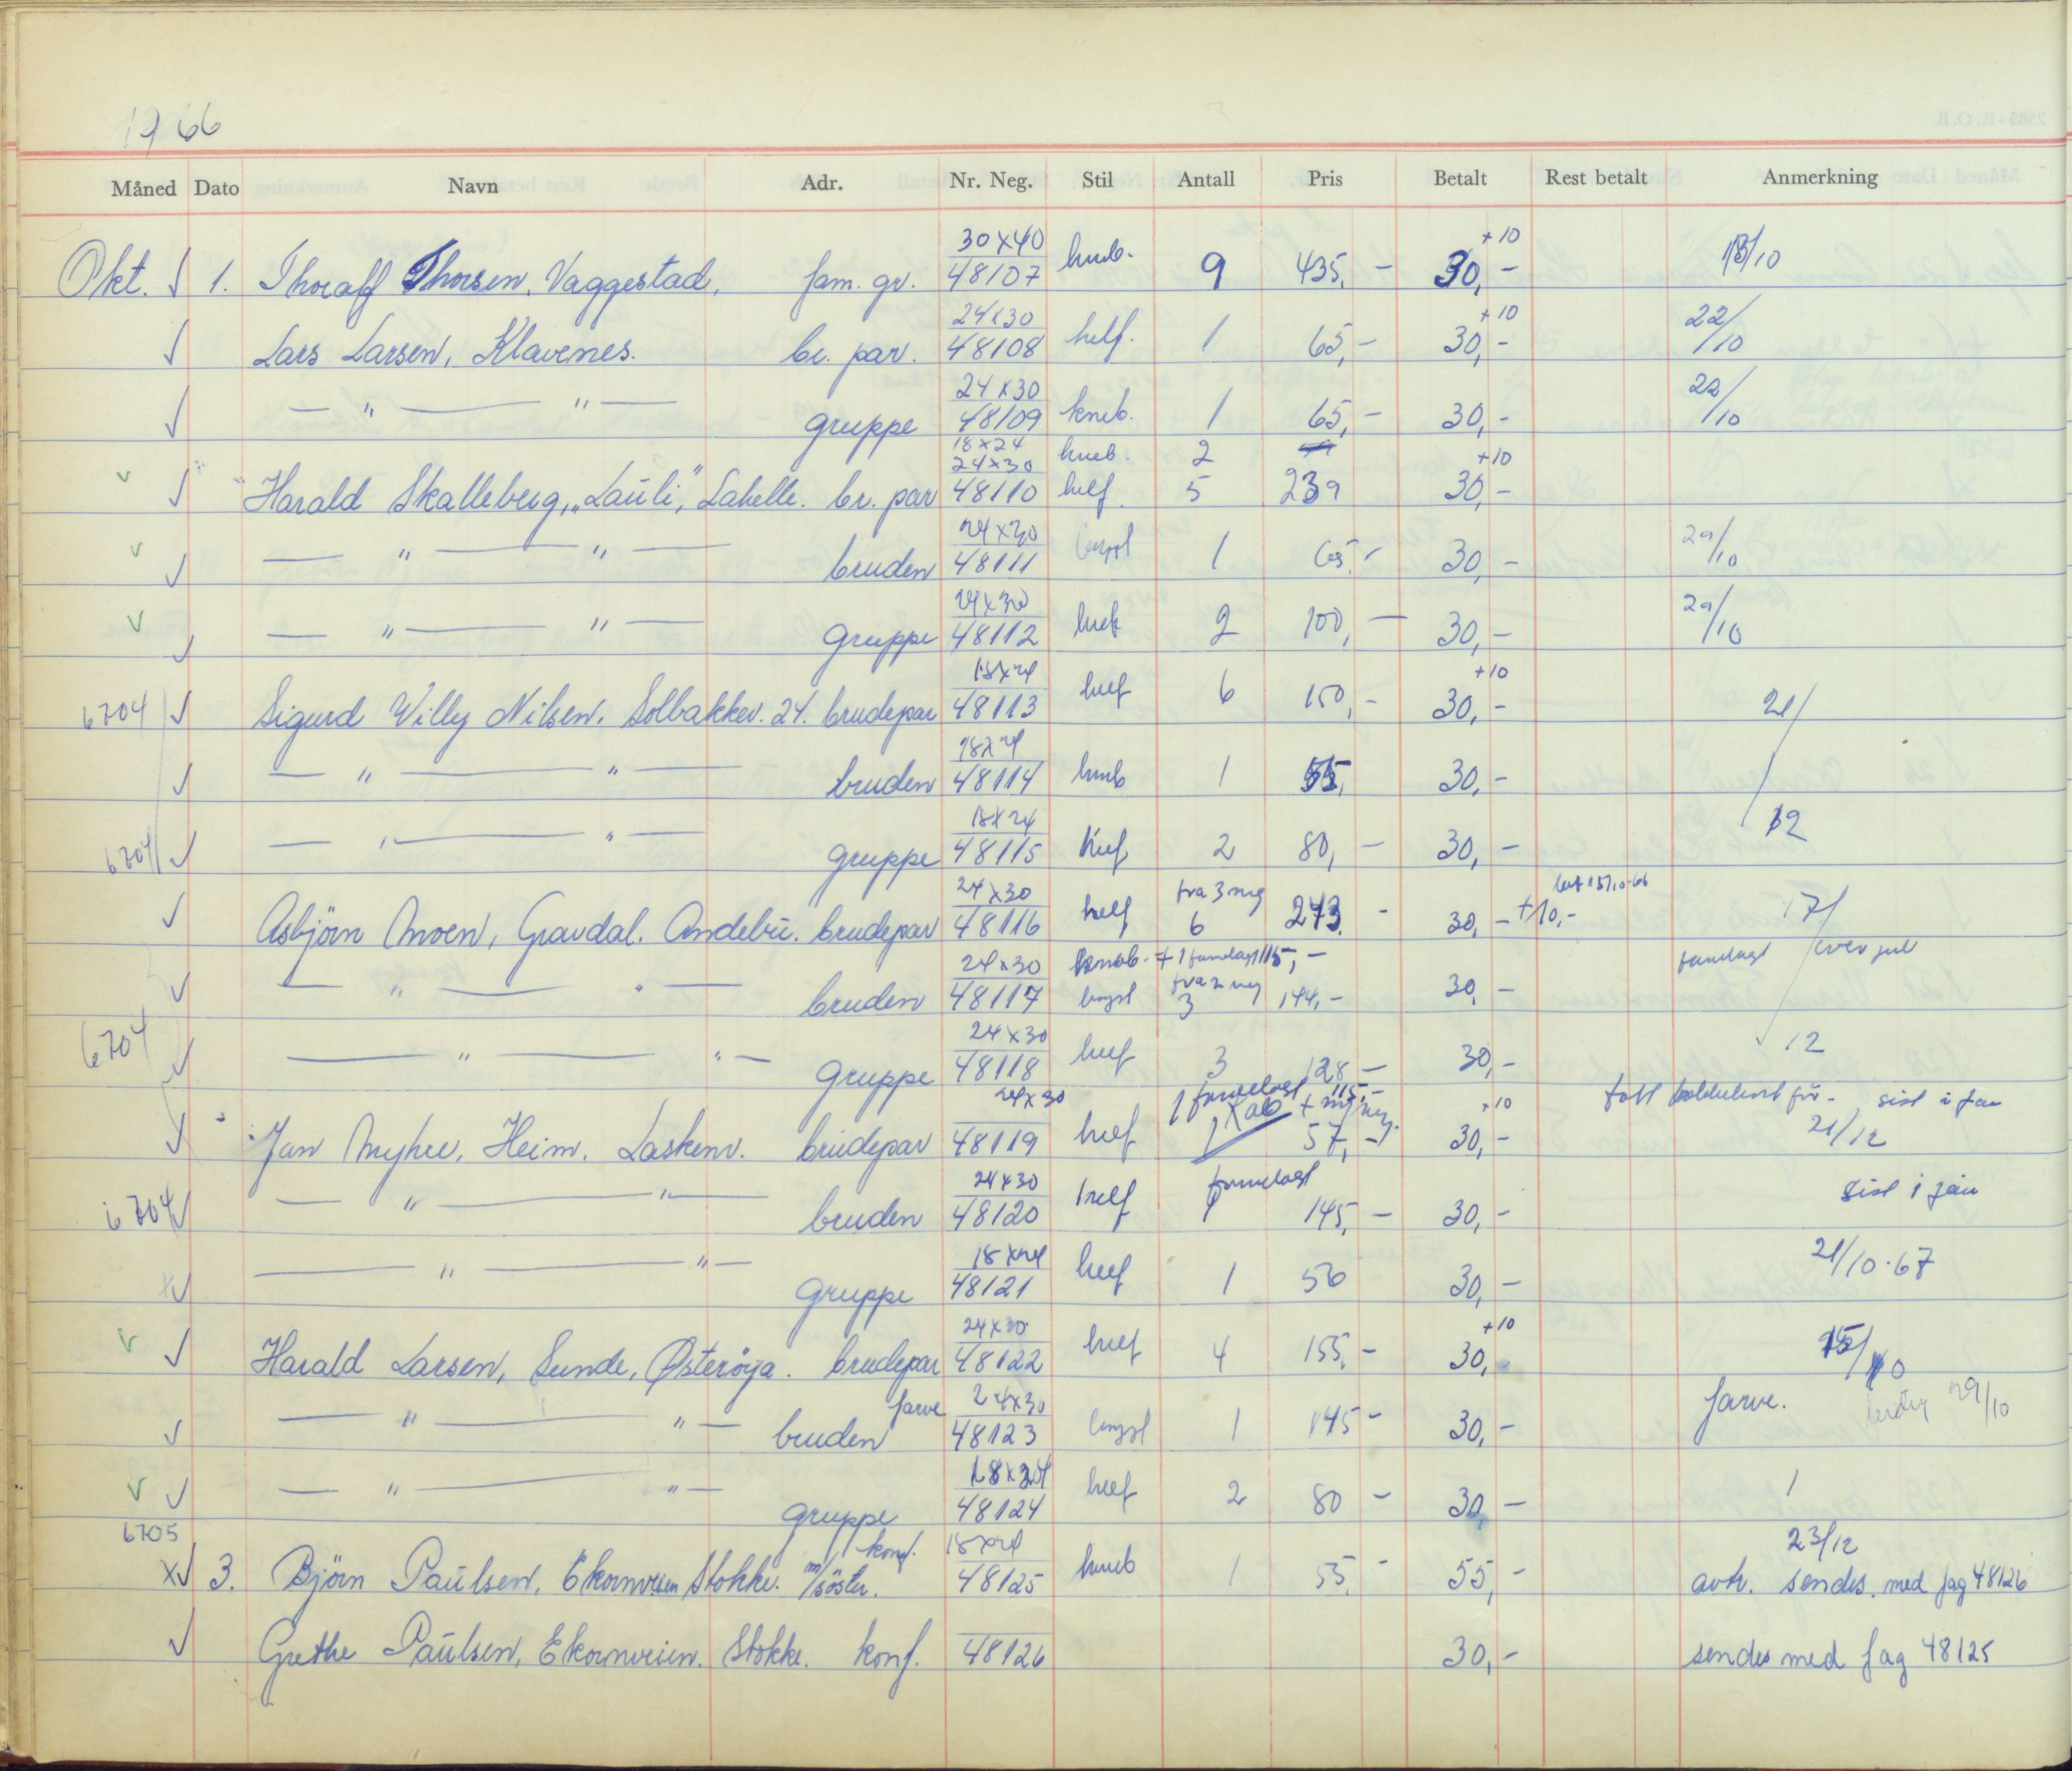 1966
Måned Dato Navn Adr. Nr. Neg. Stil Antall Pris Betalt Rest betalt Anmerkning
30x40 +10
Okt. √ 1. Thoralf Thorsen, Vaggestad, fam. gr. 48107 kneb. 9 435,- 30,- 13/10
24x30 +10
√ Lars Larsen, Klavenes. br. par. 48108 helf. 1 65,- 30,- 22/10
24x30
√ — " — " — gruppe 48109 kneb. 1 65,- 30,- 22/10
18x24 kneb. 2
24x30 +10
v √ Harald Skalleberg, „Lauli", Lahelle. br. par 48110 helf. 5 239 30,-
24x30
v √ — " — " — bruden 48111 1 65,- 30,- 29/10
24x30
v √ — " — " — gruppe 48112 2 100,- 30,- 29/10
18x24 +10
6704 √ Sigurd Willy Nilsen, Solbakkev. 24. brudepar 48113 helf 6 150,- 30,- 21/
18x24
√ — " — " — bruden 48114 kneb 1 55, 30,-
18x24 12
6704 √ — " — " — gruppe 48115 2 80,- 30,-
24x30 fra 3 neg
√ Asbjörn Moen, Gravdal. Andebu. brudepar 48116 helf 6 273,- 30,- +10,- 17/
24x30 kneb. + 1 115,-
fra 2 neg
√ — " — " — bruden 48117 3 144,- 30,- over jul
24x30
6704 √ — " — " — gruppe 48118 helf 3 128,- 30,- 12
24x30 1 115,- sist i jan
+10
√ Jan Myhre, Heim. Laskenv. brudepar 48119 helf 1 57,- 30,- 21/12
24x30
6704 √ — " — " — bruden 48120 helf 1 145,- 30,- sist i jan
18x24
x√ — " — " — gruppe 48121 helf 1 50 30,- 21/10-67
24x30 +10
v √ Harald Larsen, Sunde, Østeröya. brudepar 48122 helf 4 155,- 30, 15/10
farve 24x30
√ — " — " — bruden 48123 1 145- 30,- farve. 29/10
18x24
v √ — " — " — gruppe 48124 helf 2 80- 30,-
6705 konf. 18x24 23/12
x√ 3. Björn Paulsen, Ekornveien Stokke. m/söster. 48125 kneb 1 55,- 55,- avh. sendes. med fag 48126
√ Grethe Paulsen, Ekornveien. Stokke. konf. 48126 30,- sendes med fag 48125